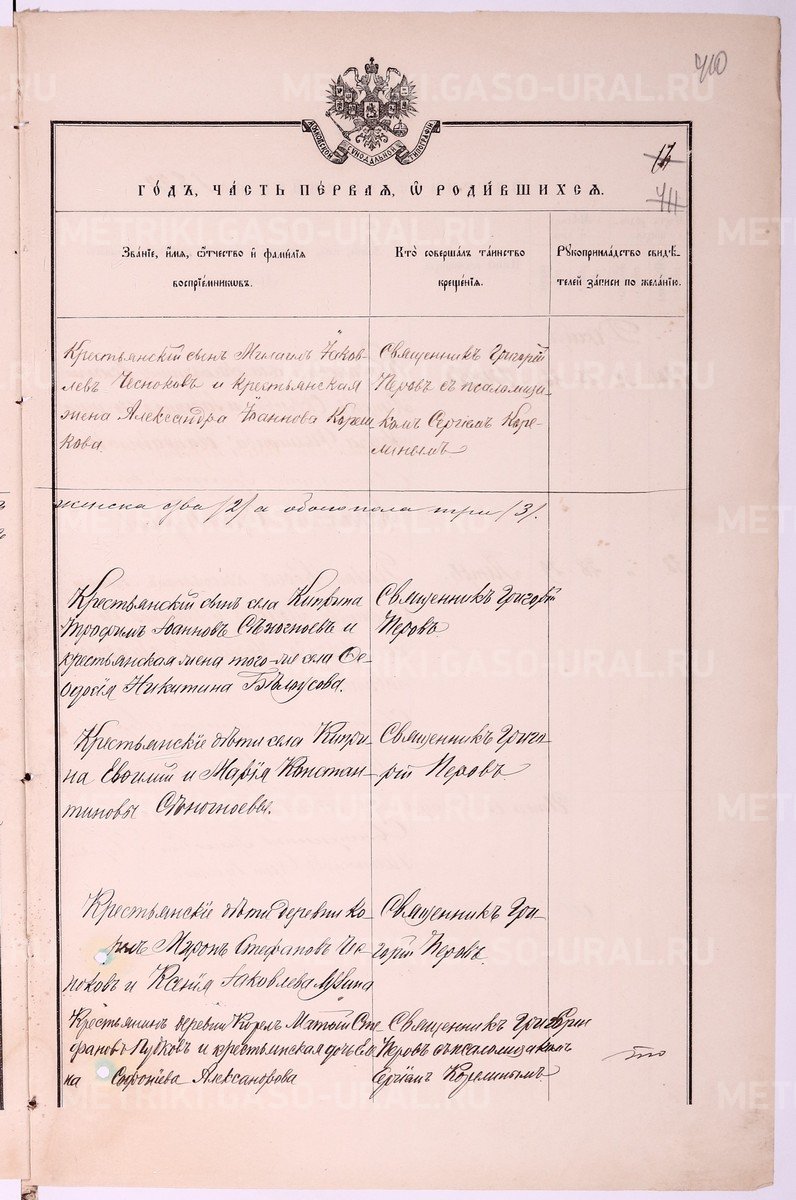 METRIKI.GASO-URAL.RU
710
МОСКОВСКОЙ СѴНОДАЛЬНОЙ ТИПОГРАФІИ
17
711
ГОДЪ, ЧАСТЬ ПЕРВАЯ, Ѡ РОДИВШИХСЯ.
Званіе, имя, ѿчество и фамилія
воспріемниковъ.
Кто совершалъ таинство
крещенія.
Рукоприкладство свидѣ-
телей записи по желанію.
Крестьянскій сынъ Михаилъ Іаков-
левъ Чесноковъ и крестьянская
жена Александра Іоаннова
кова
Священникъ Григорій
Перовъ съ псаломщи-
комъ Сергіемъ Коре-
линымъ
женска два /2/ а обоего пола три /3/.
Крестьянскій сынъ села Киприна
Трофимъ Іоанновъ Сѣногноевъ и
крестьянская жена того-же села Ѳе-
одосія Никитина Бѣлоусова.
Священникъ Григорій
Перовъ
Крестьянскіе дѣти села Кипри-
на Евѳимій и Марія Констан-
тиновы Сѣногноевы.
Священникъ Григо-
рій Перовъ
Крестьянскіе дѣти деревни Ко-
релъ Миронъ Стефановъ Чес-
ноковъ и Ксенія Іаковлева
Священникъ Гри-
горій Перовъ.
Крестьянинъ деревни Корелъ Сте-
фановъ и крестьянская дочь Еле-
на Александрова
Священникъ Григорій
Перовъ съ псаломщикомъ
Сергіемъ Корелинымъ